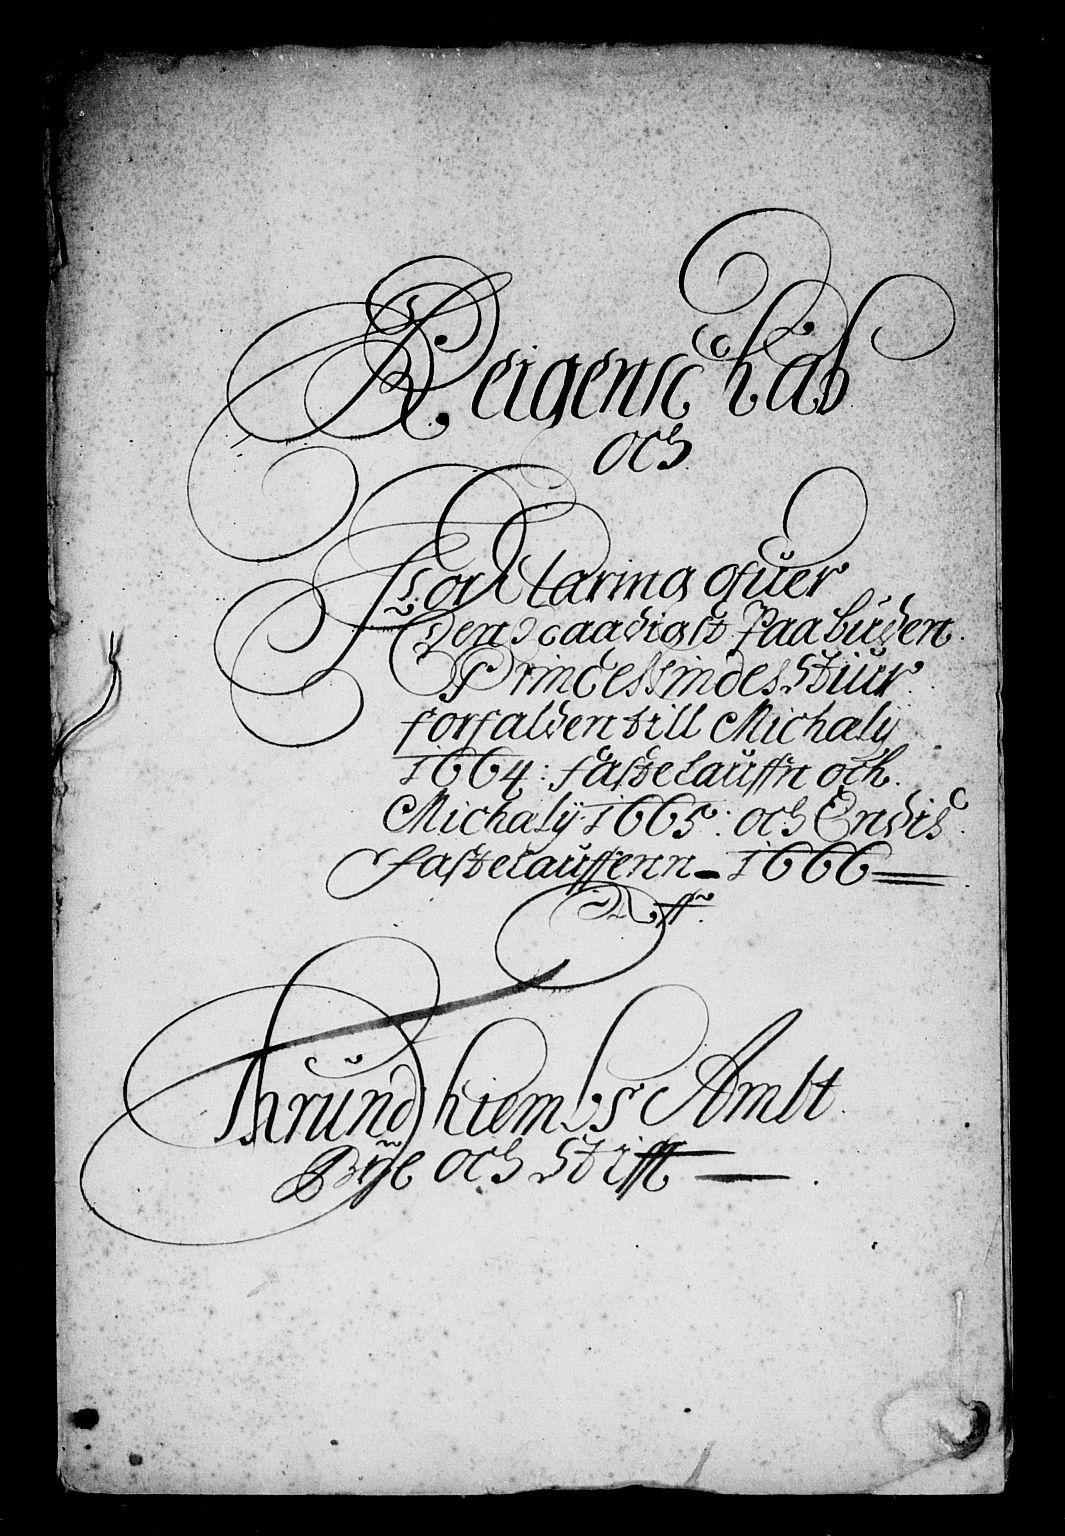 Reigenschab
och
Forklaring ofuer
den Naadigst Paabuden
Princessindes Stiur
forfalden till Michalÿ
1664: fastelauffn och
Michalÿ 1665: och Endis
fastelauffenn 1666
Aff
Thrundhiembs Ambt
Bÿe och Stifft